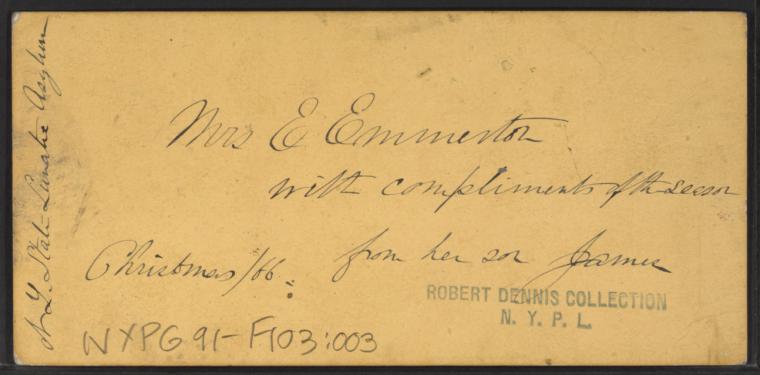 Mrs E Emmerton
with compliments of the season
from her son James
Christmas/66.
N.Y. State Lunatic Asylum
ROBERT DENNIS COLLECTION
N. Y. P. L.
NYPG 91-F103:003